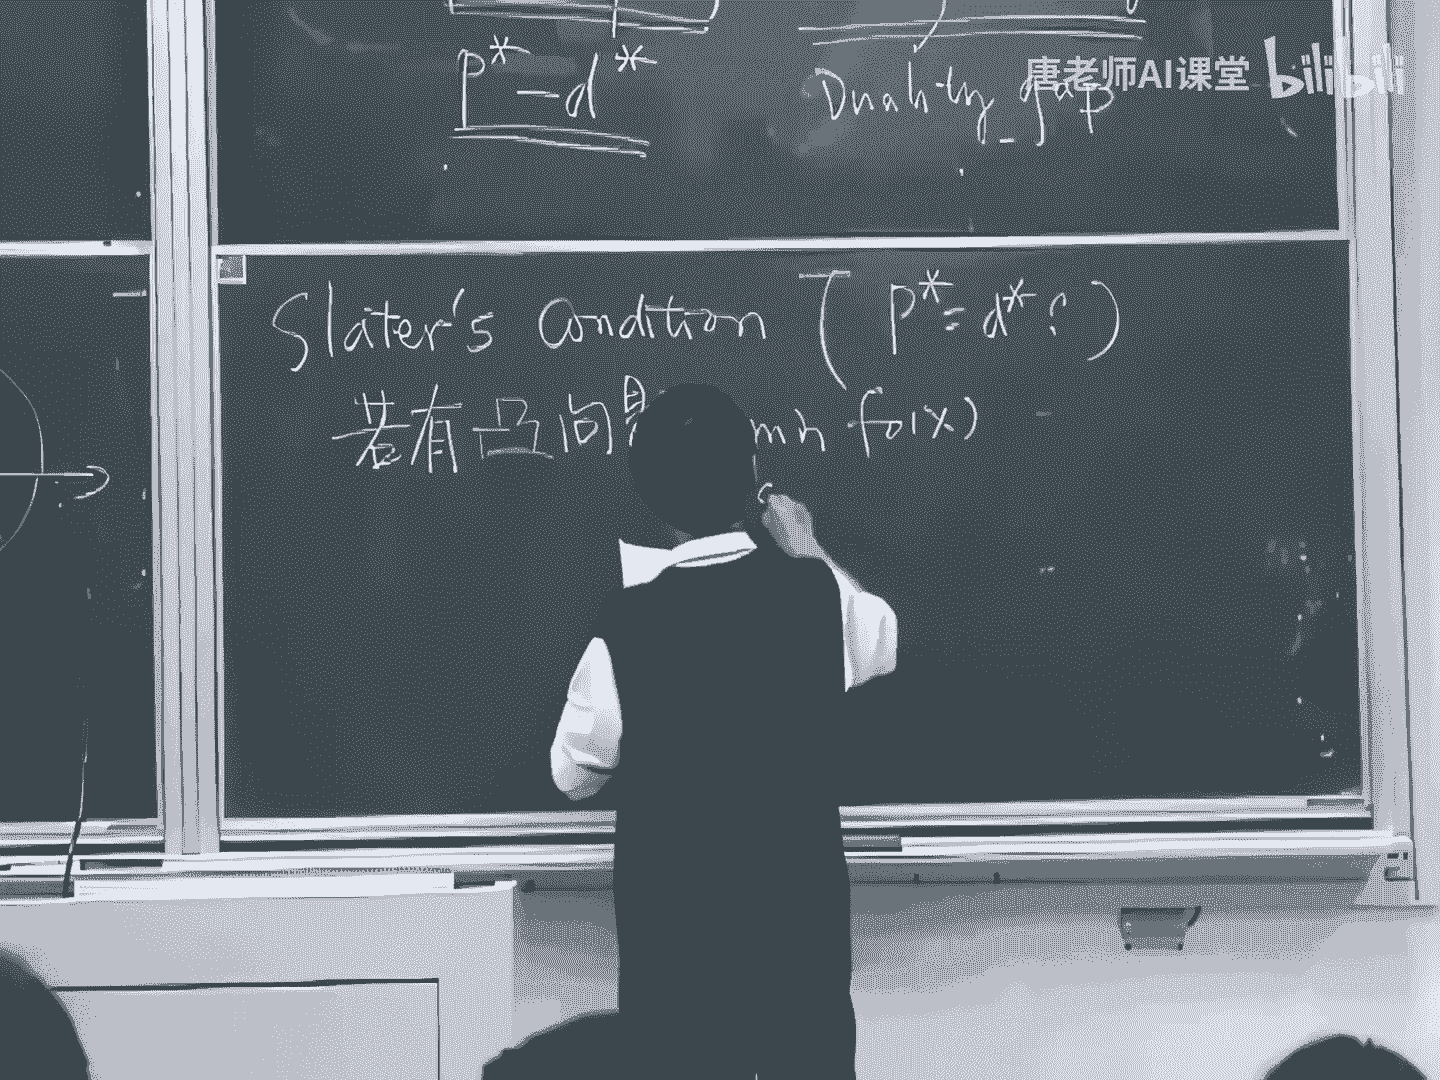 P* - d* Duality gap
唐老师AI课堂 bilibili
Slater's Condition ( P* = d* ? )
若有凸问题 min f₀(x)